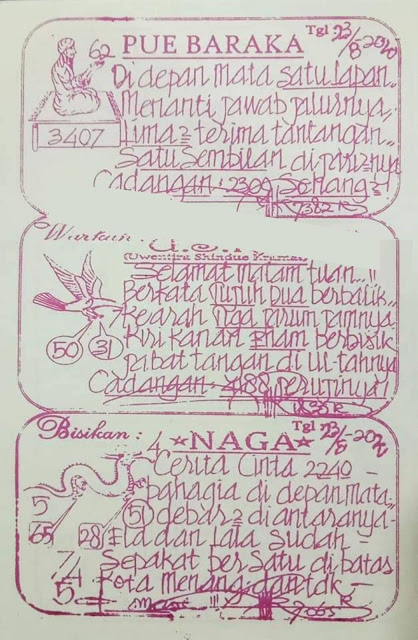 PUE BARAKA
Tgl 23/8-2020
62
3407
Di depan mata satu lapan..
Menanti jawab jalurnya,
Lima2 terima tantangan..
Satu Sembilan di
Cadangan: 2309 Senang2
7382 R
Wartawan:
(Uwentira Shindue Kramat)
Selamat malam tuan...!!
Berkata Tujuh Dua berbalik..
Kearah Tiga jarum jamnya
Kiri kanan Enam berbisik
jabat tangan di
Cadangan: 488
50
31
1835 R
Bisikan: ★NAGA★
Tgl 23/8-2020
4
Cerita Cinta 2240 -
bahagia di depan mata..
debar2 di antaranya-
Ela dan Lala sudah -
Sepakat berSatu di batas
Kota Menang
5
65
28
51
74
5
9065 R